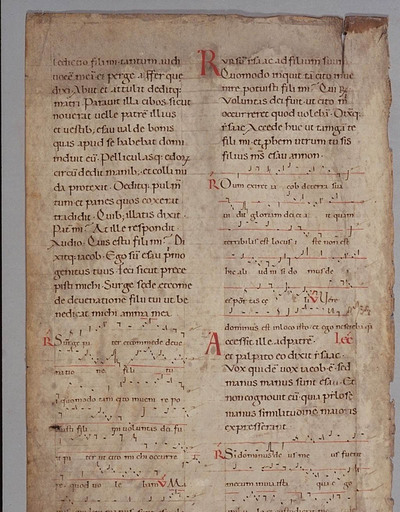 ledictio fili mi tantum audi
uocē meā et perge affer que
dixi Abiit et attulit deditq;
matri Parauit illa cibos sicut
nouerat uelle patrē illius
et uestib; esau ual de bonis
quas apud se habebat domi
induit eū Pelliculasq; edorū
circū dedit manib; et colli nu
da protexit Deditq; pulm̄
tum et panes quos coxerat
tradidit Quib; illatis dixit
Pat mi At ille respondit
Audio Quis es tu fili mi Di
xitq; iacob Ego sū esau pmo
genitus tuus feci sicut prece
pisti michi Surge sede et come
de de uenatione filii tui ut be
nedicat michi anima mea
R Surge pa ter et comede de ue
natio ne filii tui
quomodo tam cito inueni re po
tuisti fili mi uoluntas dei fu
it pa ter ut cito michi occurre
ret quod uole bam V
Rursū ysaac ad filium suū
Quomodo inquit ta cito inue
nire potuisti fili mi Qui R
Voluntas dei fuit ut cito m
occurreret quod uolebā Dixq;
ysaac Accede huc ut tangā te
fili mi et pbem utrum tu sis
filius ms esau an non
R Dum exiret ia cob de terra sua
uidit gloriam dei et a it quam
terribilis est locus iste non est
hic ali ud ni si do mus de
et por tas ce li V Uere
dominus est in loco isto et ego nesciebā qā
Accessit ille ad patrē Lec
et palpato eo dixit ysaac
Vox quidē uox iacob ē sed
manus manus sunt esau Et
non cognouit eū quia pilose
manus similitudinē maioris
expresserant
R Si dominus de us me us fuerit
mecum in uia ista qua e go